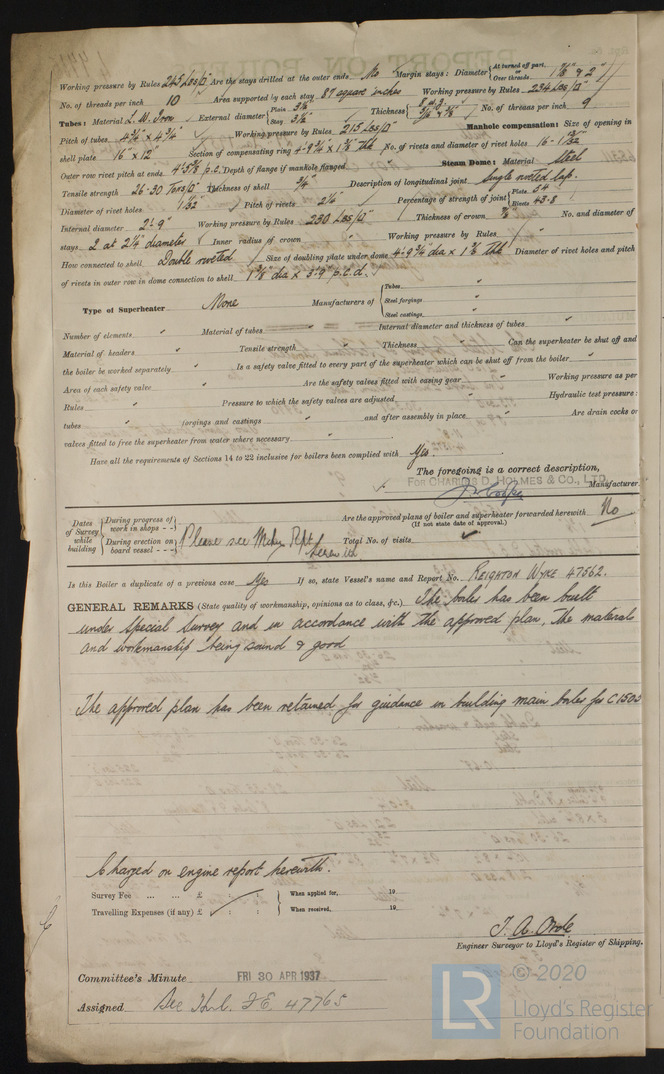 Working pressure by Rules 245 Lbs/□" Are the stays drilled at the outer ends No Margin stays: Diameter { At turned off part, or Over threads 1 7/8" & 2"
No. of threads per inch 10 Area supported by each stay 87 square inches Working pressure by Rules 234 Lbs/□"
Tubes: Material L.W. Iron External diameter { Plain 3 1/2" Stay 3 1/2" Thickness { 8 W.G. 5/16" & 3/8" No. of threads per inch 9
Pitch of tubes 4 3/4" x 4 3/4" Working pressure by Rules 215 Lbs/□" Manhole compensation: Size of opening in
shell plate 16" x 12" Section of compensating ring No. of rivets and diameter of rivet holes
Outer row rivet pitch at ends Depth of flange if manhole flanged " Steam Dome: Material Steel
Tensile strength 26-30 Tons/□" Thickness of shell 3/4" Description of longitudinal joint Single riveted lap.
Diameter of rivet holes 1 1/32" Pitch of rivets Percentage of strength of joint { Plate Rivets 43.8
Internal diameter 2'-9" Working pressure by Rules 230 Lbs/□" Thickness of crown No. and diameter of
stays 2 at 2 1/4" diameter Inner radius of crown " Working pressure by Rules "
How connected to shell Double riveted Size of doubling plate under dome 4'-9 3/4" dia x 1 3/8" thk Diameter of rivet holes and pitch
of rivets in outer row in dome connection to shell
Type of Superheater None Manufacturers of { Tubes " Steel forgings " Steel castings "
Number of elements " Material of tubes Internal diameter and thickness of tubes "
Material of headers " Tensile strength " Thickness " Can the superheater be shut off and
the boiler be worked separately " Is a safety valve fitted to every part of the superheater which can be shut off from the boiler "
Area of each safety valve " Are the safety valves fitted with easing gear " Working pressure as per
Rules " Pressure to which the safety valves are adjusted " Hydraulic test pressure:
tubes " forgings and castings " and after assembly in place " Are drain cocks or
valves fitted to free the superheater from water where necessary "
Have all the requirements of Sections 14 to 22 inclusive for boilers been complied with Yes.
The foregoing is a correct description,
For CHARLES D. HOLMES & Co., LTD. Manufacturer.
Dates of Survey while building { During progress of work in shops - - During erection on board vessel - - - } Please see Mchy Rpt herewith
Are the approved plans of boiler and superheater forwarded herewith No
(If not state date of approval.)
Total No. of visits
Is this Boiler a duplicate of a previous case Yes If so, state Vessel's name and Report No. REIGHTON WYKE 47562.
GENERAL REMARKS (State quality of workmanship, opinions as to class, &c.) The boiler has been built
under Special Survey and in accordance with the approved plan, The materials
and workmanship being sound & good
The approved plan has been retained for guidance in building main boiler for C1505
Charged on engine report herewith.
Survey Fee ... ... £ : : When applied for, 19
Travelling Expenses (if any) £ : : When received, 19
Engineer Surveyor to Lloyd's Register of Shipping.
Committee's Minute FRI 30 APR 1937
Assigned See Hul. F.E. 47765
LR
© 2020
Lloyd's Register
Foundation